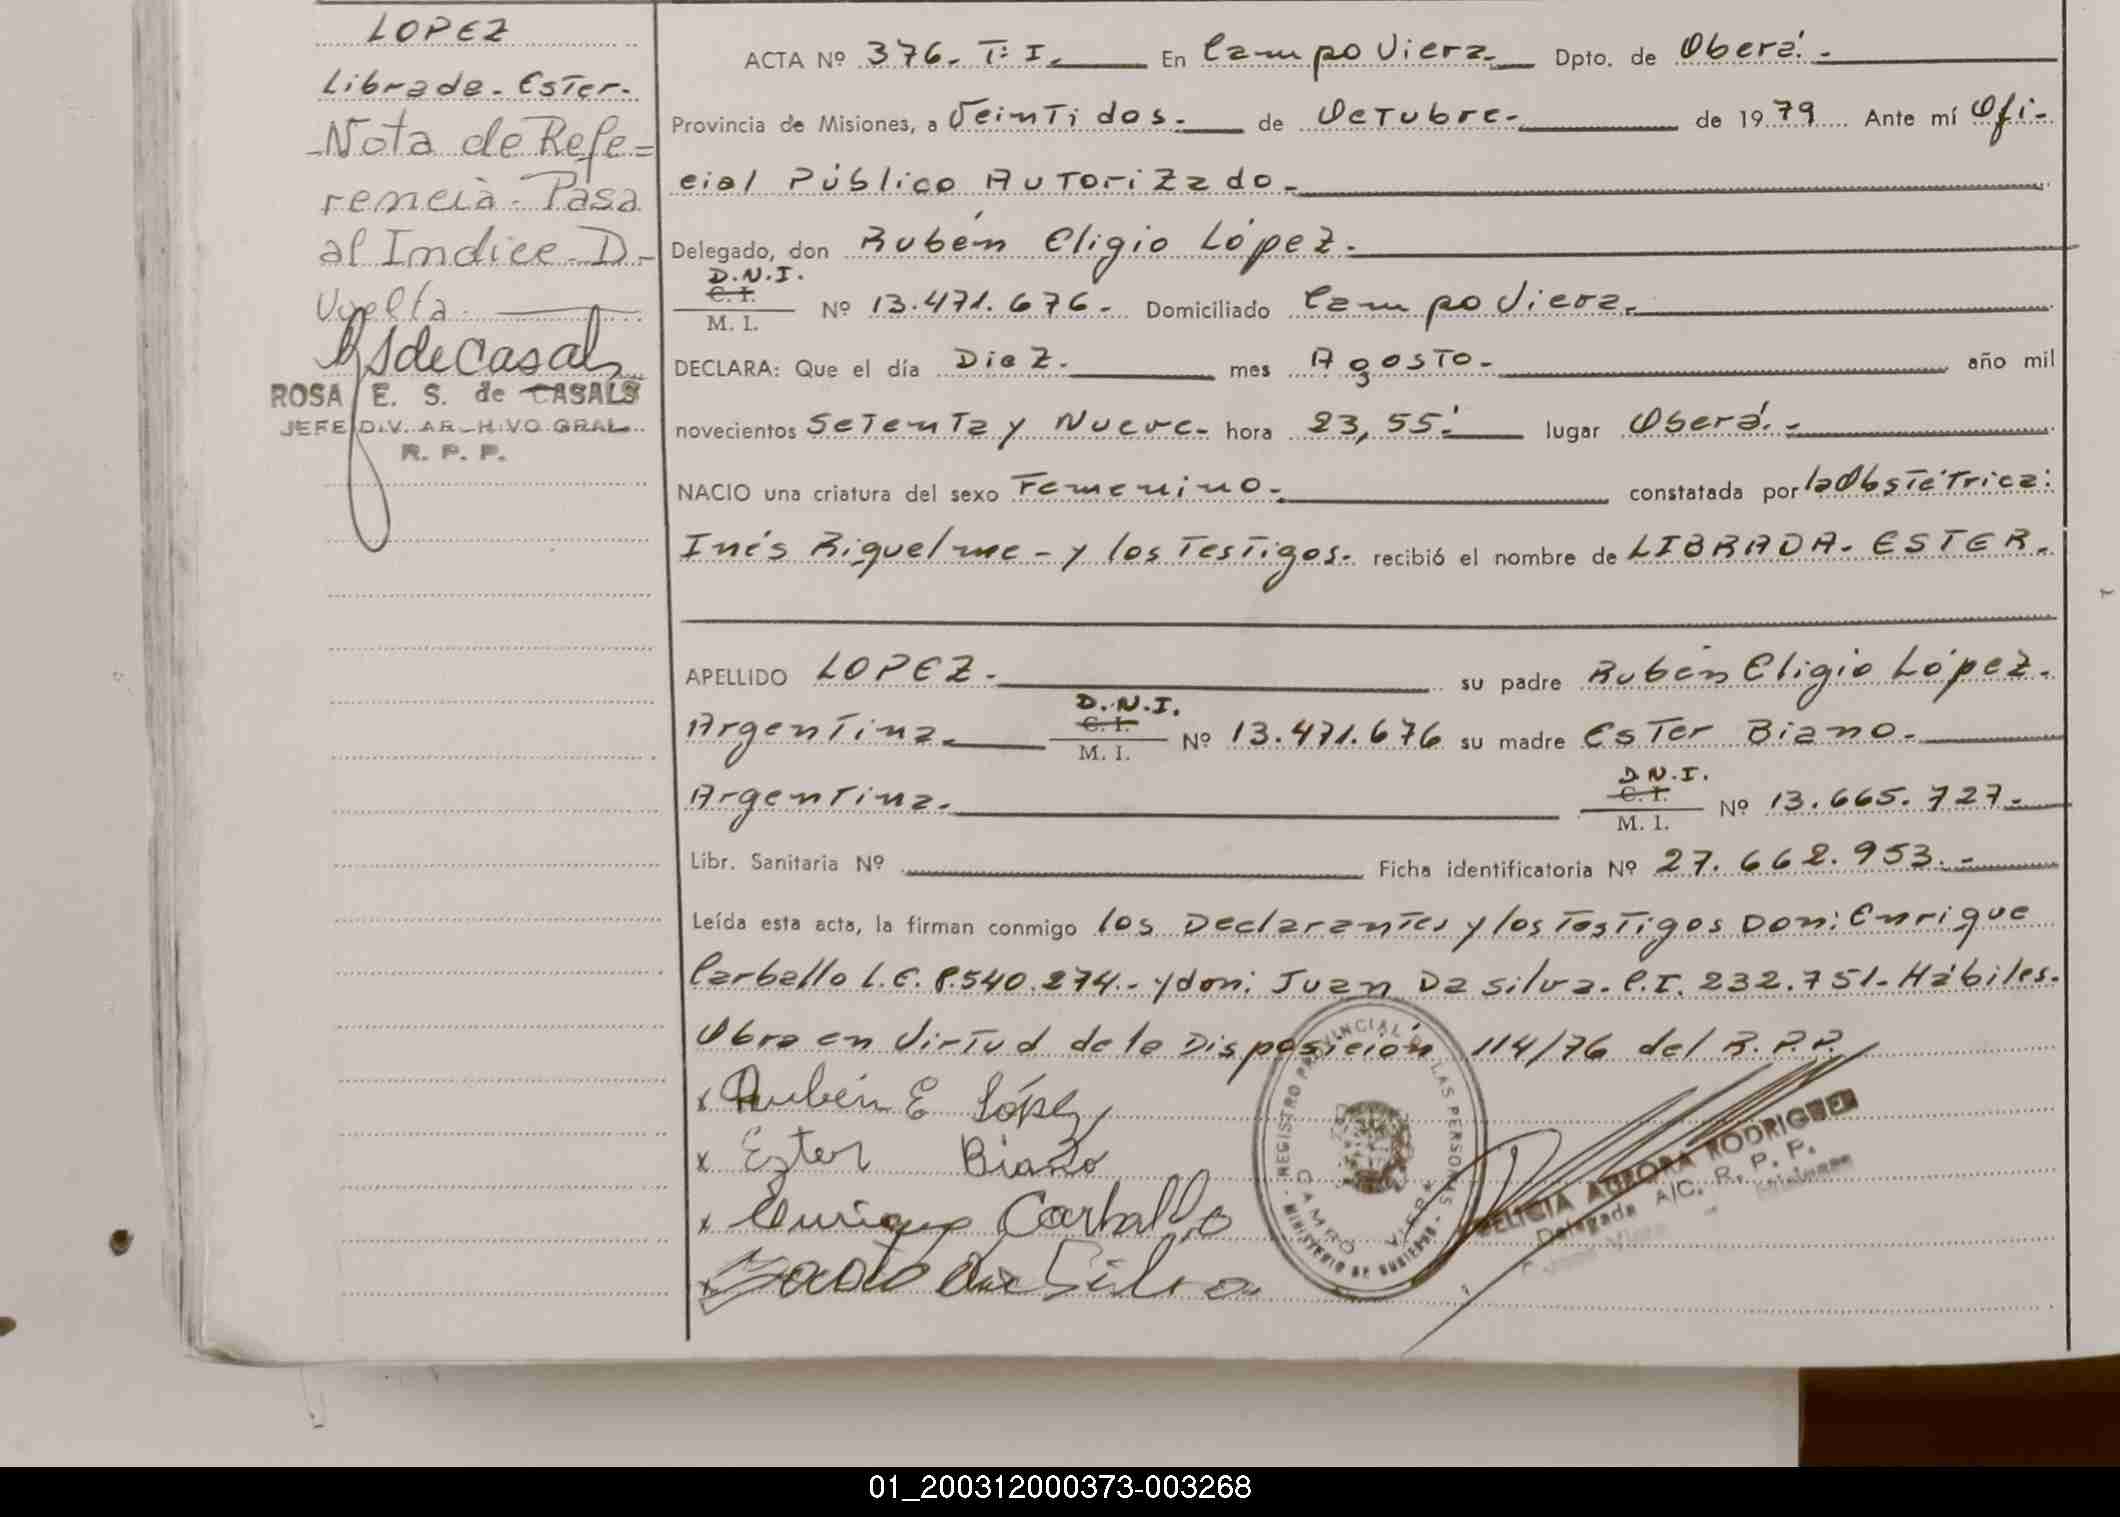 LOPEZ
Librada - Ester.
- Nota de Refe=
rencia - Pasa
al Indice - D -
Vuelta
RSdeCasals
ROSA E. S. de CASALS
JEFE DIV. ARCHIVO GRAL.
R. P. P.
ACTA Nº 376 - T: I. En Campo Viera Dpto. de Oberá. -
Provincia de Misiones, a Veintidos. de Octubre. de 1979 Ante mí Ofi-
cial Público Autorizado.
Delegado, don Rubén Eligio López.
D.N.I.
C. I.
M. I. Nº 13.471.676 - Domiciliado Campo Viera.
DECLARA: Que el día Diez. mes Agosto. año mil
novecientos Setenta y Nueve. hora 23,55' lugar Oberá. -
NACIO una criatura del sexo Femenino. constatada por la Obstétrica:
Inés Riquelme - y los Testigos. recibió el nombre de LIBRADA - ESTER.
APELLIDO LOPEZ. su padre Rubén Eligio López.
D.N.I.
Argentina. C. I. M. I. Nº 13.471.676 su madre Ester Biano.
D.N.I.
Argentina. C. I. M. I. Nº 13.665.727 -
Libr. Sanitaria Nº Ficha identificatoria Nº 27.662.953. -
Leída esta acta, la firman conmigo los Declarantes y los Testigos Don: Enrique
Carballo L.E. 8.540.274. - y don: Juan Da Silva. C.I. 232.751 - Hábiles.
Obra en Virtud de la Disposición 114/76 del R.P.P.
x Rubén E López
x Ester Biano
x Enrique Carballo
x da Silva
REGISTRO PROVINCIAL DE LAS PERSONAS
CAMPO VIERA
- MINISTERIO DE GOBIERNO -
FELICIA AURORA RODRIGUEZ
Delegada A/C. R. P. P.
Campo Viera - Misiones
01_200312000373-003268